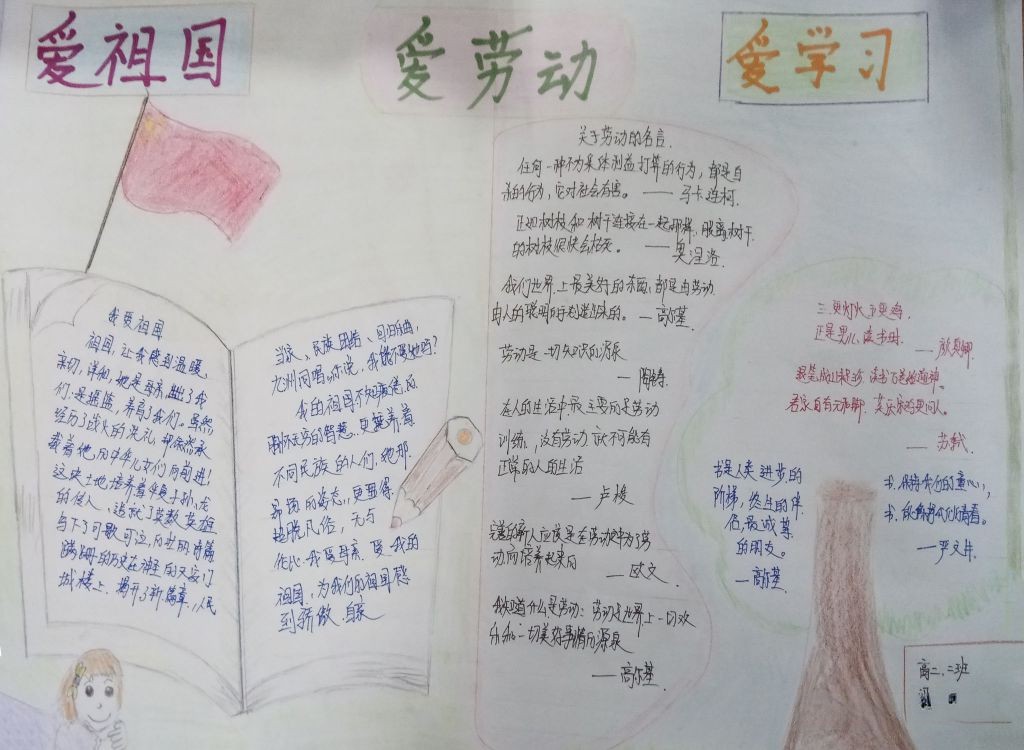 爱祖国
爱劳动
爱学习
我爱祖国
祖国,让我感到温暖、
亲切、详和,她是母亲
们.是摇篮,养育了我们。虽然
经历了战火的洗礼,却依然承
载着她的中华儿女们向前进!
这块土地,培养着华夏子孙、龙
的传人、造就了英数英雄
与下可歌可泣,的壮丽诗篇
的历史在神圣的天安门
城楼上.揭开了新篇章,人民
当家、民族团结、
九州同唱.你说,我能不爱她吗?
我的祖国不知疲倦,的
胸怀.无穷的智慧.
不同民族的人们.她那
的姿态,更显得
超脱凡俗,无与
伦比.我爱母亲.爱我的
祖国,为我们的祖国感
到骄傲.自豪
关于劳动的名言.
任何一种不为集体利益打算的行为,都是自
杀的行为,它对社会有害。——马卡连柯.
正如树枝和树干连接在一起那样,脱离树干
的树枝很快会枯死。——奥涅洛
我们世界上最美好的东西,都是由劳动
由人的聪明的手创造出来的。——高尔基
劳动是一切知识的源泉
——陶铸.
在人的生活中最主要的是劳动
训练,没有劳动就不可能有
正常的人的生活
——卢梭
完善的新人应该是在劳动之中为了劳
动而培养起来的 ——欧文.
我知道什么是劳动:劳动是世界上一切欢
乐和一切美好事情的源泉
——高尔基.
三更灯火五更鸡.
正是男儿读书时.
——颜真卿
若家自有
——苏轼
书是人类进步的
阶梯,终生的伴
侣,最诚挚
的朋友。
—高尔基
书.保持我们的童心;
书.
—严文井.
高二.二班